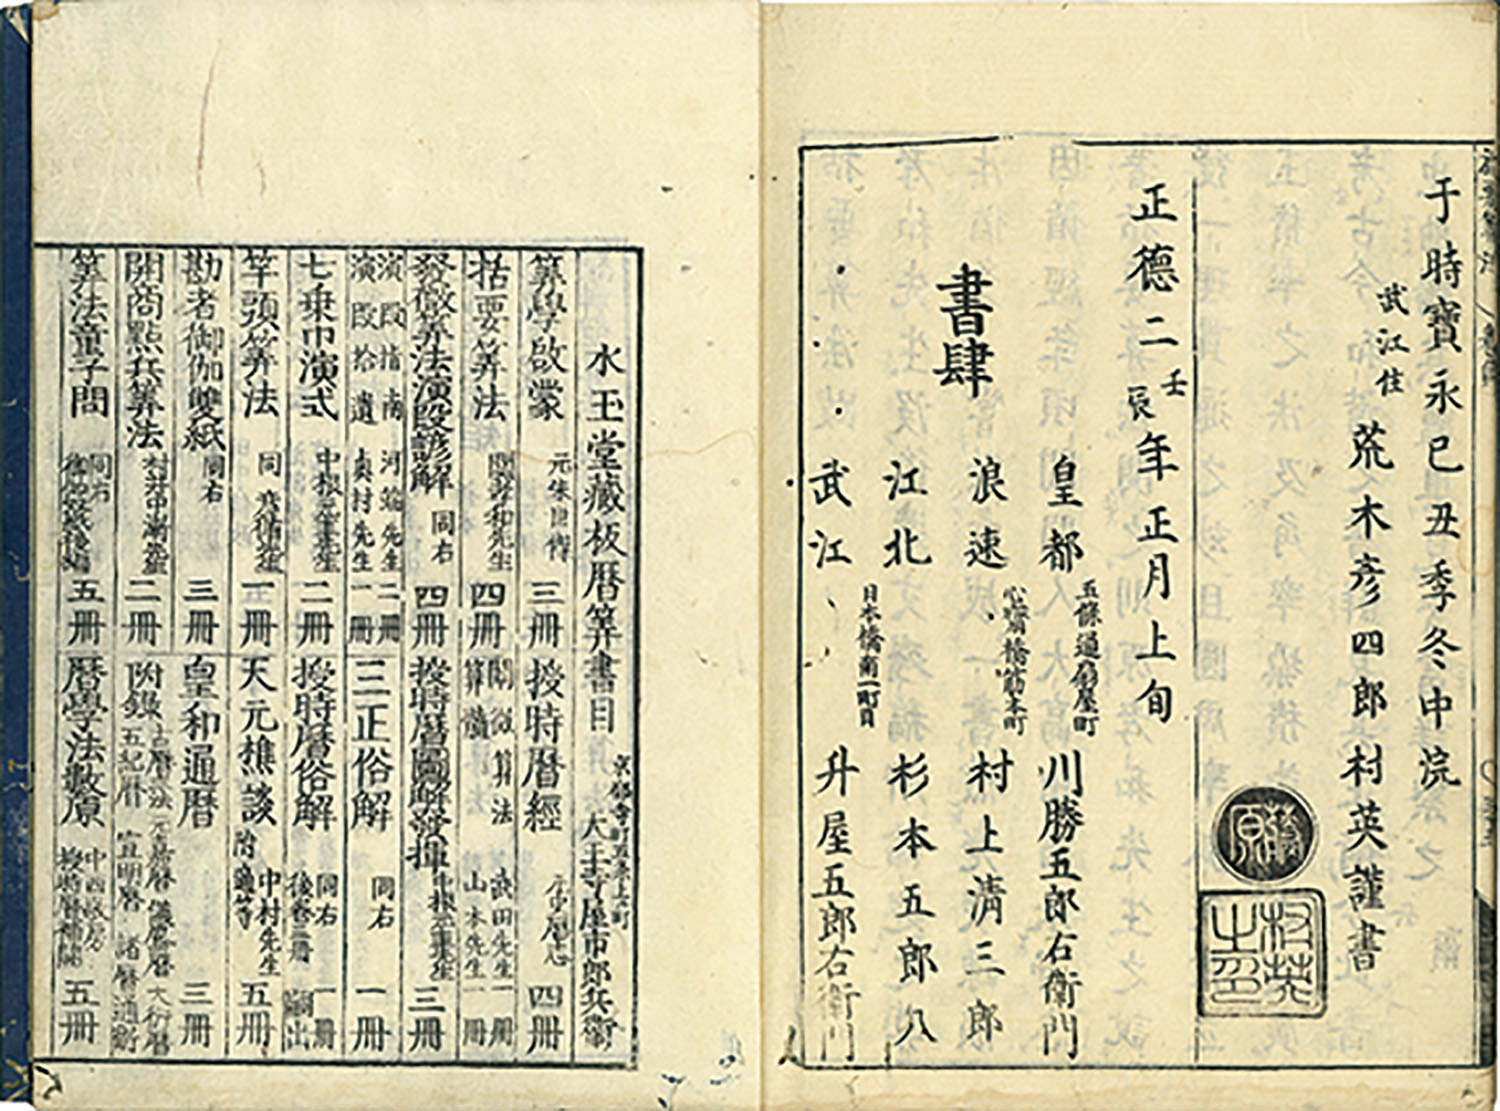 于時寶永己丑季冬中浣
武江住
荒木彦四郎村英謹書
正德二壬辰年正月上旬
書肆
皇都
五條通
川勝五郎右衛門
浪速
心齋橋筋本町
村上淸三郎
江北
杉本五郎八
武江
日本橋南一町目
升屋五郎右衛門
水玉堂藏板曆算書目
天王寺屋市郎兵衛
算學啟蒙
三冊
授時曆經
四冊
括要算法
關孝和先生
四冊
關微算法
武田先生
一冊
算髓
山本先生
一冊
發微算法演段諺解
同右
四冊
授時曆圖解發揮
三冊
演段指南
河端先生
二冊
演段拾遺
奥村先生
一冊
三正俗解
同右
一冊
七乗巾演式
中根元圭先生
二冊
授時曆俗解
同右
一冊
後卷三冊
嗣出
竿頭算法
同
一冊
天元樵談
中村先生
五冊
勘者御伽雙紙
同右
三冊
皇和通曆
三冊
開商點兵算法
村井中漸先生
二冊
附錄
古曆法
元嘉曆
儀鳳曆
大衍曆
五紀曆
宣明曆
諸曆通断
算法童子問
同右
五冊
曆學法數原
五冊